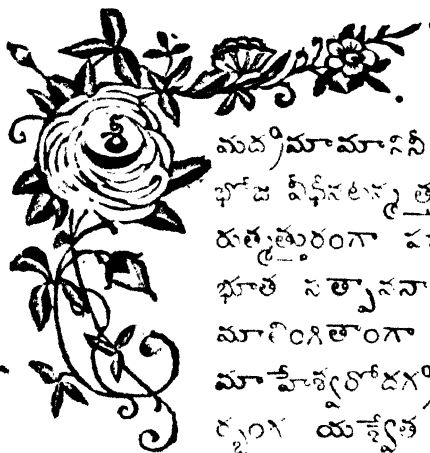 శ్రీ
మద్రిమామానినీ
భోజ వీథీనటన్మత్త
రుత్మత్తురంగా
భూత సత్పాననా
మాలింగితాంగా
మాహేశ్వరోదగ్ర
యశ్వేత